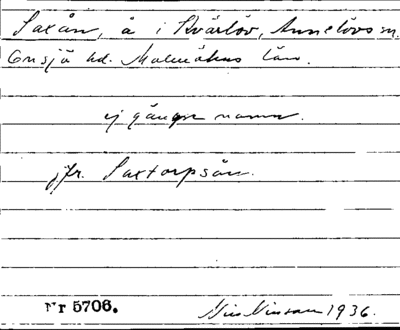 Saxån, å i Kvärlöv, Annelövs sn.
Onsjö hd. Malmöhus län.
ej gängse namn.
jfr. Saxtorpsån.
Nr 5706.
Nils Nilsson 1936.